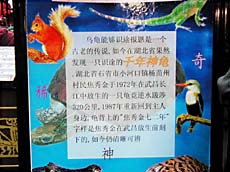 乌龟能够识途报恩是一个
古老的传说,如今在湖北省果然
发现一只识途的千年神龟
。湖北省石首市小河口镇杨苗州
村民焦秀金于1972年在武昌长
江中放生的一只龟竟逆水跋涉
320公里,1987年重新回到主人
身边,龟背上的"焦秀金七二年"
字样是焦秀金在武昌放生前刻
下的,如今仍清晰可辨
稀
奇
神